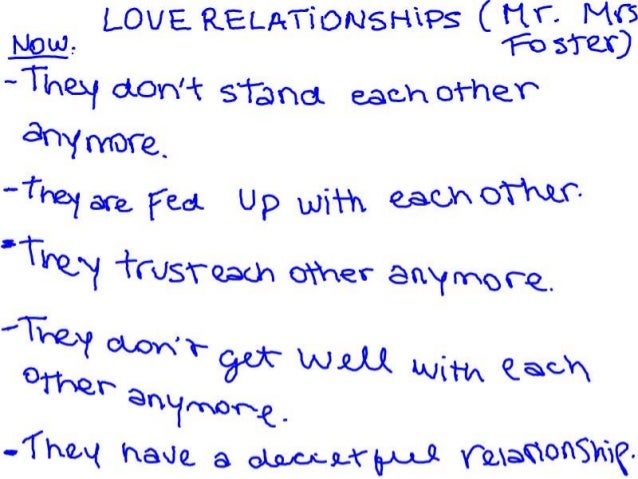 LOVE RELATIONSHIPS (Mr. Mrs
Foster)
Now:
- They don't stand each other
anymore.
- They are Fed Up with each other.
- They trust each other anymore.
- They don't get well with each
other anymore.
- They have a decietful relationship.